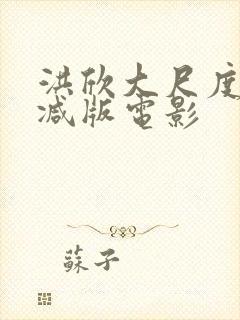 洪欣大尺度
减版電影
蘇子